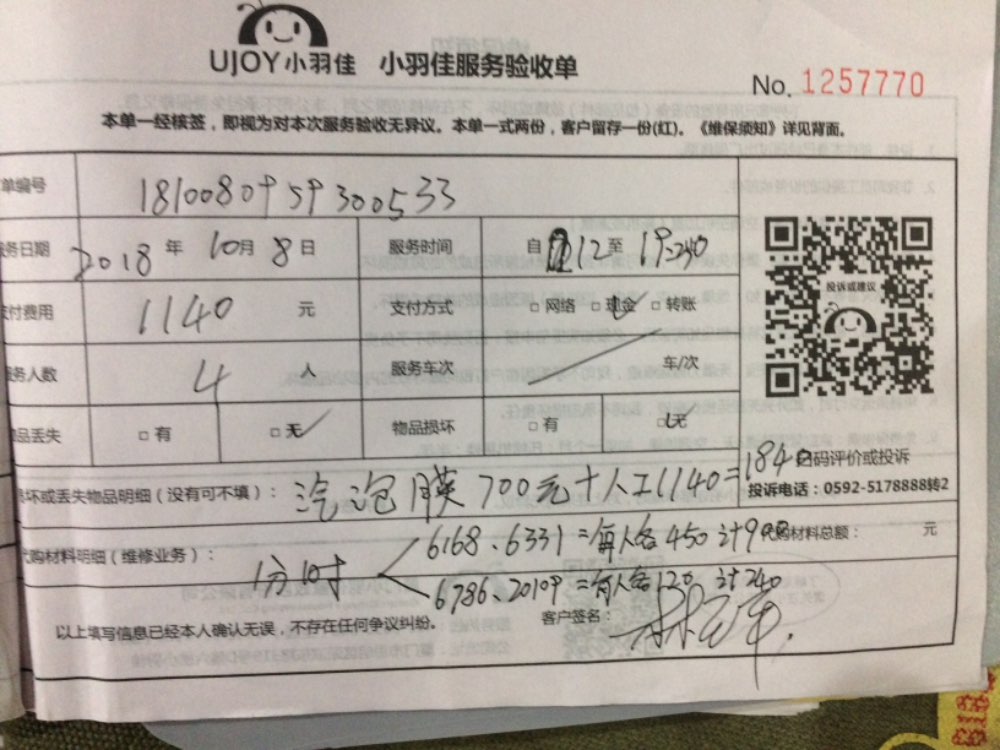 UJOY小羽佳 小羽佳服务验收单
No. 1257770
本单一经核签，即视为对本次服务验收无异议。本单一式两份，客户留存一份(红)。《维保须知》详见背面。
单编号 1810080959300533
务日期 2018 年 10 月 8 日 服务时间 自 12 至 19:40
付费用 1140 元 支付方式 □ 网络 □ 现金 □ 转账
投诉或建议
服务人数 4 人 服务车次 车/次
品丢失 □ 有 □ 无 物品损坏 □ 有 □ 无
扫码评价或投诉
投诉电话：0592-5178888转2
损坏或丢失物品明细（没有可不填）： 汽泡膜700元+人工1140=1840
代购材料明细（维修业务）： 代购材料总额： 元
分时 6168、6331=每人各450 计900
6786、20109=每人各120 计240
客户签名：
以上填写信息已经本人确认无误，不存在任何争议纠纷。